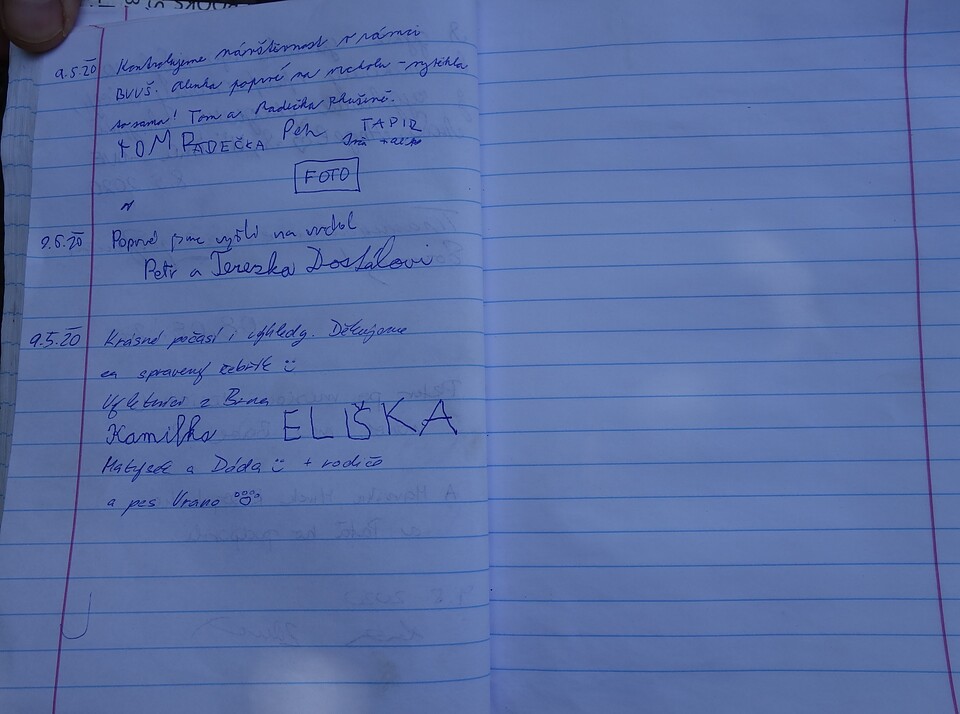 9.5.20 Kontrolujeme návštěvnost v rámci
BVVŠ. Alenka poprvé na vrcholu - vylezla
to sama! Tom a Radečka
TOM RADEČKA Petr TAPIR
FOTO
9.5.20 Poprvé jsme vyšli na vrchol
Petr a Terezka Dostálovi
9.5.20 Krásné počasí i výhledy. Děkujeme
za spravený žebřík
Výletníci z Brna
Kamilka ELIŠKA
Matýsek a Dáda + rodiče
a pes Urano